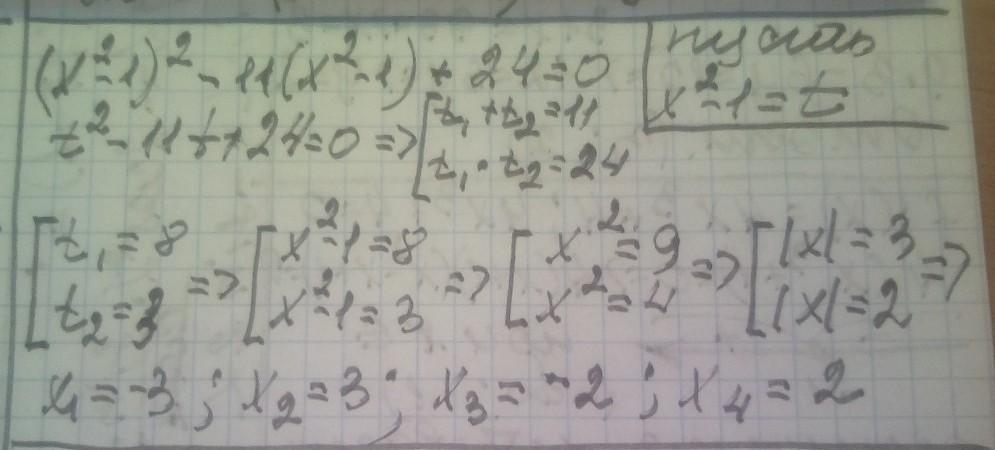 (x²-1)² - 11(x²-1) + 24=0
пусть
x²-1=t
t²-11t+24=0 => [t₁+t₂=11
t₁·t₂=24
[t₁=8 => [x²-1=8 => [x²=9 => [|x|=3 =>
t₂=3 x²-1=3 x²=4 |x|=2
x₁=-3; x₂=3; x₃=-2; x₄=2